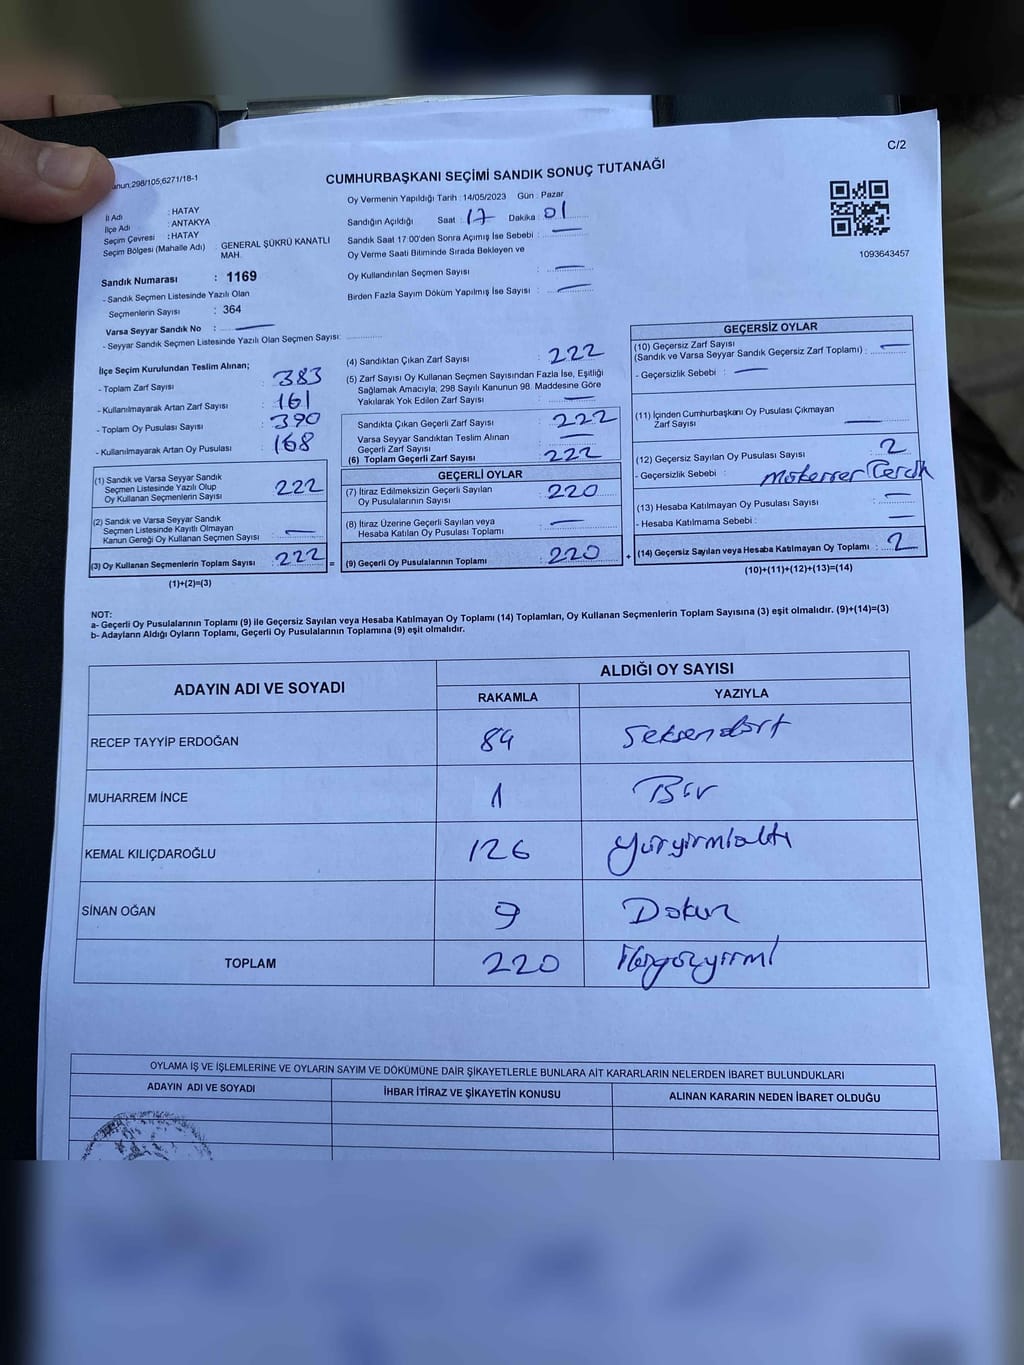 C/2
CUMHURBAŞKANI SEÇİMİ SANDIK SONUÇ TUTANAĞI
anun;298/105,6271/18-1
İl Adı : HATAY
İlçe Adı : ANTAKYA
Seçim Çevresi : HATAY
Seçim Bölgesi (Mahalle Adı) : GENERAL ŞÜKRÜ KANATLI
MAH.
Sandık Numarası : 1169
- Sandık Seçmen Listesinde Yazılı Olan
Seçmenlerin Sayısı : 364
Varsa Seyyar Sandık No : —
- Seyyar Sandık Seçmen Listesinde Yazılı Olan Seçmen Sayısı:
Oy Vermenin Yapıldığı Tarih : 14/05/2023 Gün : Pazar
Sandığın Açıldığı Saat : 17 Dakika : 01
Sandık Saat 17.00'den Sonra Açımış İse Sebebi : —
Oy Verme Saati Bitiminde Sırada Bekleyen ve
Oy Kullandırılan Seçmen Sayısı : —
Birden Fazla Sayım Döküm Yapılmış İse Sayısı : —
1093643457
İlçe Seçim Kurulundan Teslim Alınan;
- Toplam Zarf Sayısı : 383
- Kullanılmayarak Artan Zarf Sayısı : 161
- Toplam Oy Pusulası Sayısı : 390
- Kullanılmayarak Artan Oy Pusulası : 168
(1) Sandık ve Varsa Seyyar Sandık
Seçmen Listesinde Yazılı Olup
Oy Kullanan Seçmenlerin Sayısı : 222
(2) Sandık ve Varsa Seyyar Sandık
Seçmen Listesinde Kayıtlı Olmayan
Kanun Gereği Oy Kullanan Seçmen Sayısı : —
(3) Oy Kullanan Seçmenlerin Toplam Sayısı : 222 =
(1)+(2)=(3)
(4) Sandıktan Çıkan Zarf Sayısı : 222
(5) Zarf Sayısı Oy Kullanan Seçmen Sayısından Fazla İse, Eşitliği
Sağlamak Amacıyla, 298 Sayılı Kanunun 98. Maddesine Göre
Yakılarak Yok Edilen Zarf Sayısı : —
Sandıkta Çıkan Geçerli Zarf Sayısı : 222
Varsa Seyyar Sandıktan Teslim Alınan
Geçerli Zarf Sayısı : —
(6) Toplam Geçerli Zarf Sayısı : 222
GEÇERLİ OYLAR
(7) İtiraz Edilmeksizin Geçerli Sayılan
Oy Pusulalarının Sayısı : 220
(8) İtiraz Üzerine Geçerli Sayılan veya
Hesaba Katılan Oy Pusulası Toplamı : —
(9) Geçerli Oy Pusulalarının Toplamı : 220 +
GEÇERSİZ OYLAR
(10) Geçersiz Zarf Sayısı
(Sandık ve Varsa Seyyar Sandık Geçersiz Zarf Toplamı) : —
- Geçersizlik Sebebi : —
(11) İçinden Cumhurbaşkanı Oy Pusulası Çıkmayan
Zarf Sayısı —
(12) Geçersiz Sayılan Oy Pusulası Sayısı : 2
- Geçersizlik Sebebi : Mükerrer Tercih
(13) Hesaba Katılmayan Oy Pusulası Sayısı : —
- Hesaba Katılmama Sebebi : —
(14) Geçersiz Sayılan veya Hesaba Katılmayan Oy Toplamı : 2
(10)+(11)+(12)+(13)=(14)
NOT:
a- Geçerli Oy Pusulalarının Toplamı (9) ile Geçersiz Sayılan veya Hesaba Katılmayan Oy Toplamı (14) Toplamları, Oy Kullanan Seçmenlerin Toplam Sayısına (3) eşit olmalıdır. (9)+(14)=(3)
b- Adayların Aldığı Oyların Toplamı, Geçerli Oy Pusulalarının Toplamına (9) eşit olmalıdır.
ADAYIN ADI VE SOYADI ALDIĞI OY SAYISI
RAKAMLA YAZIYLA
RECEP TAYYİP ERDOĞAN 84 Seksendört
MUHARREM İNCE 1 Bir
KEMAL KILIÇDAROĞLU 126 Yüzyirmialtı
SİNAN OĞAN 9 Dokuz
TOPLAM 220 İkiyüzyirmi
OYLAMA İŞ VE İŞLEMLERİNE VE OYLARIN SAYIM VE DÖKÜMÜNE DAİR ŞİKAYETLERLE BUNLARA AİT KARARLARIN NELERDEN İBARET BULUNDUKLARI
ADAYIN ADI VE SOYADI İHBAR İTİRAZ VE ŞİKAYETİN KONUSU ALINAN KARARIN NEDEN İBARET OLDUĞU